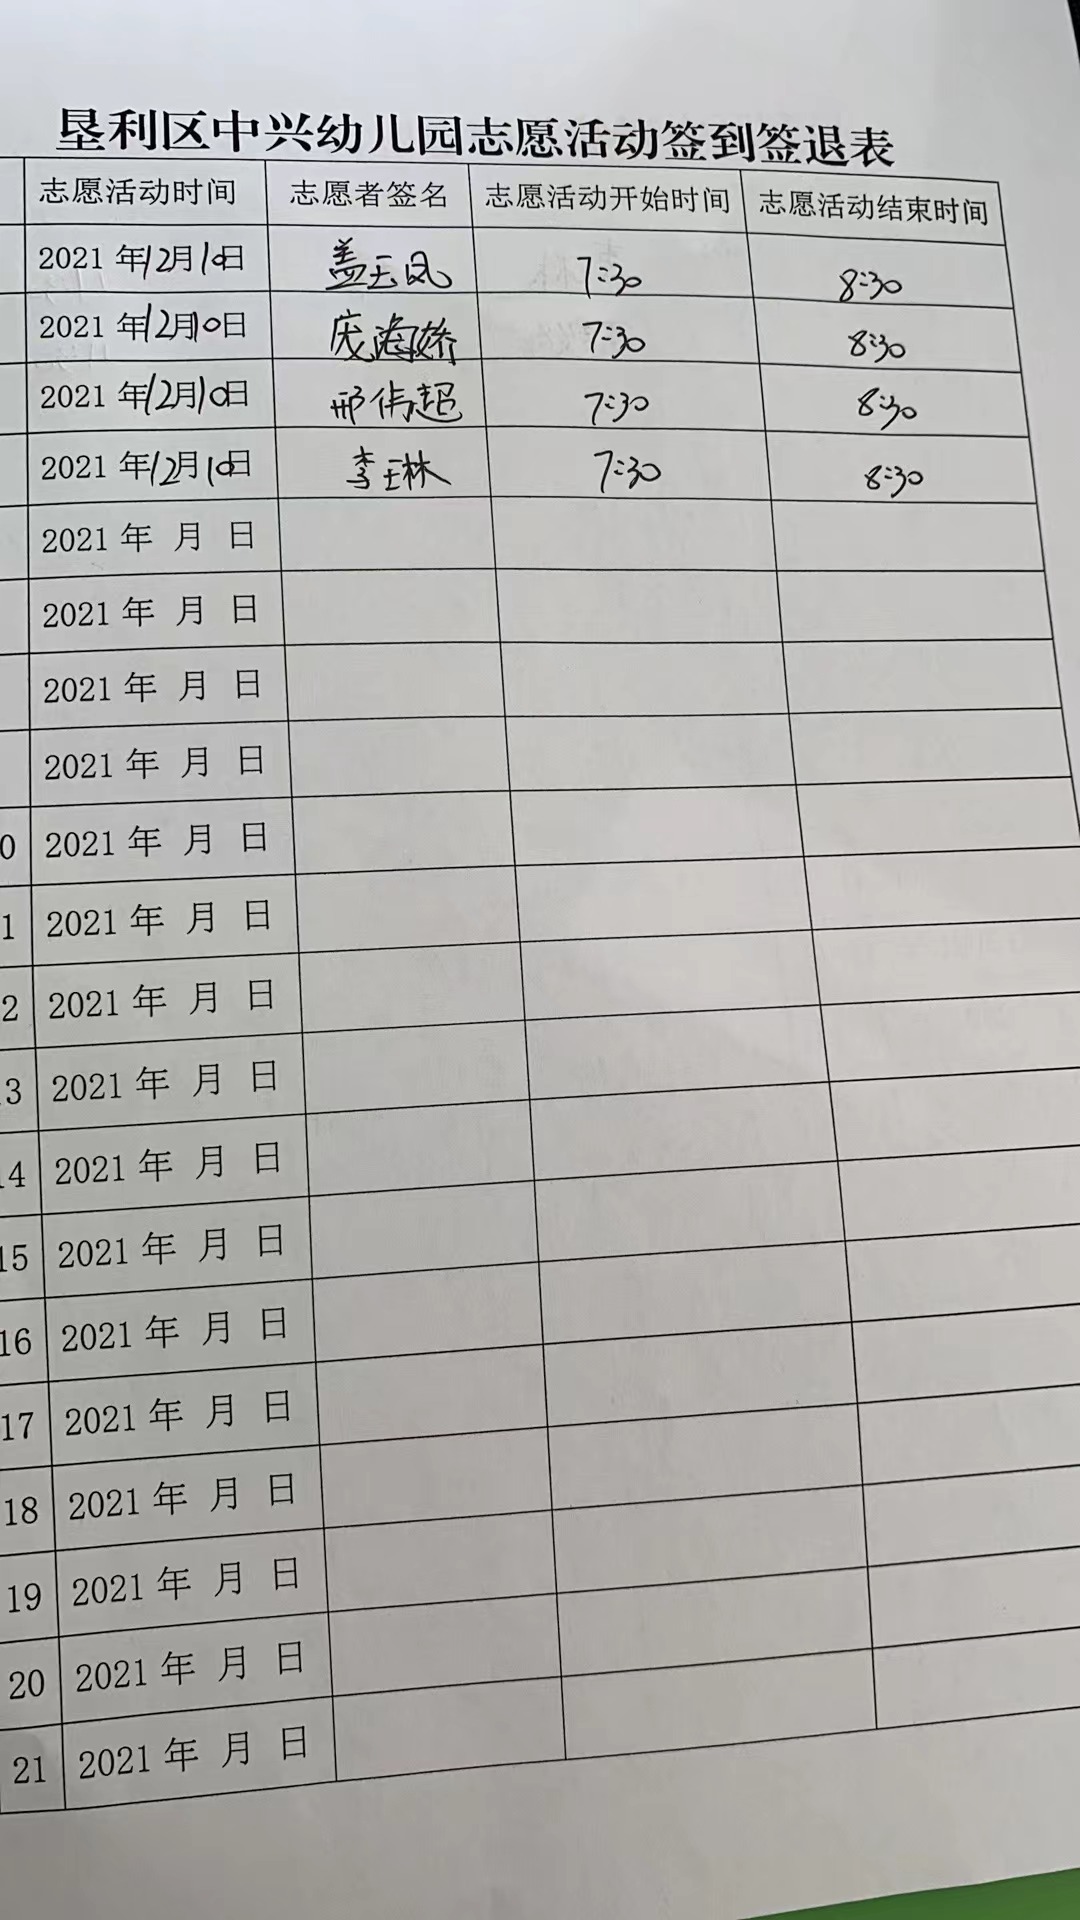 垦利区中兴幼儿园志愿活动签到签退表
志愿活动时间 志愿者签名 志愿活动开始时间 志愿活动结束时间
2021年12月10日 盖玉凤 7:30 8:30
2021年12月10日 庞海娇 7:30 8:30
2021年12月10日 邢伟超 7:30 8:30
2021年12月10日 李玉林 7:30 8:30
2021年 月 日
2021年 月 日
2021年 月 日
2021年 月 日
0 2021年 月 日
1 2021年 月 日
2 2021年 月 日
3 2021年 月 日
14 2021年 月 日
15 2021年 月 日
16 2021年 月 日
17 2021年 月 日
18 2021年 月 日
19 2021年 月 日
20 2021年 月 日
21 2021年 月 日